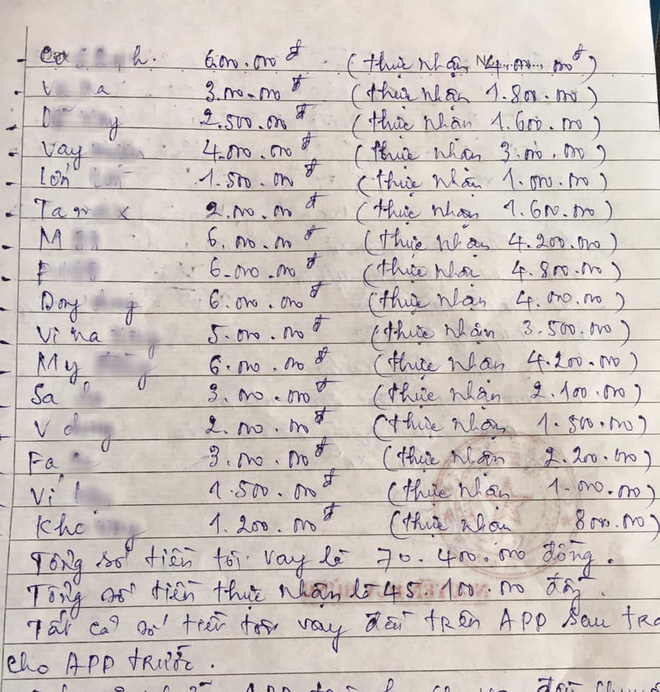 6.000.000đ (thực nhận 4.000.000đ)
3.000.000đ (thực nhận 1.800.000)
2.500.000đ (thực nhận 1.600.000)
Vay 4.000.000đ (thực nhận 3.000.000)
1.500.000đ (thực nhận 1.000.000)
2.000.000đ (thực nhận 1.600.000)
M 6.000.000đ (thực nhận 4.200.000)
6.000.000đ (thực nhận 4.800.000)
Dong 6.000.000đ (thực nhận 4.000.000)
Vi na 5.000.000đ (thực nhận 3.500.000)
My 6.000.000đ (thực nhận 4.200.000)
Sa 3.000.000đ (thực nhận 2.100.000)
V 2.000.000đ (thực nhận 1.300.000)
Fa 3.000.000đ (thực nhận 2.200.000)
Vi 1.500.000đ (thực nhận 1.000.000)
Kho 1.200.000đ (thực nhận 800.000)
Tổng số tiền tôi vay là 70.400.000 đồng.
Tổng số tiền thực nhận là 45.100.000 đồng.
Tất cả số tiền tôi vay đều trên APP sau trả
cho APP trước.